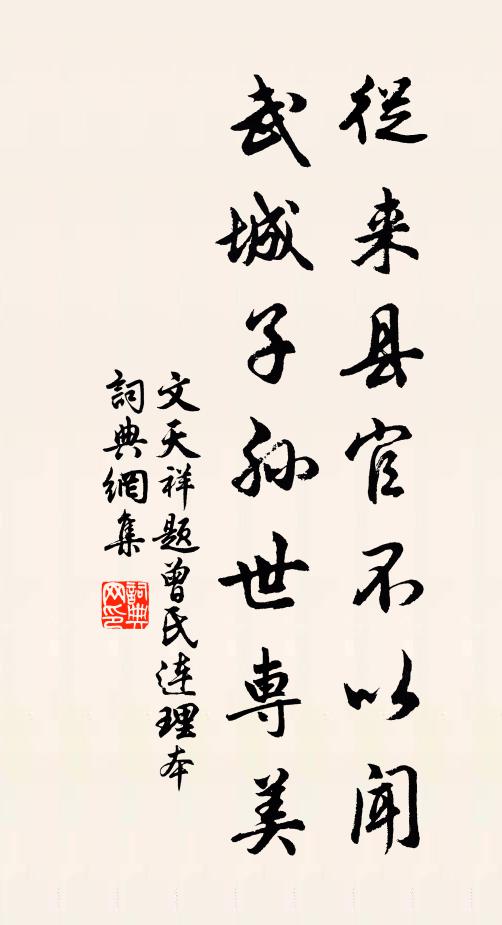 從来县官不以闻
武城子孙世専美
文天祥题曾氏连理本
詞典網集
詞典
网印